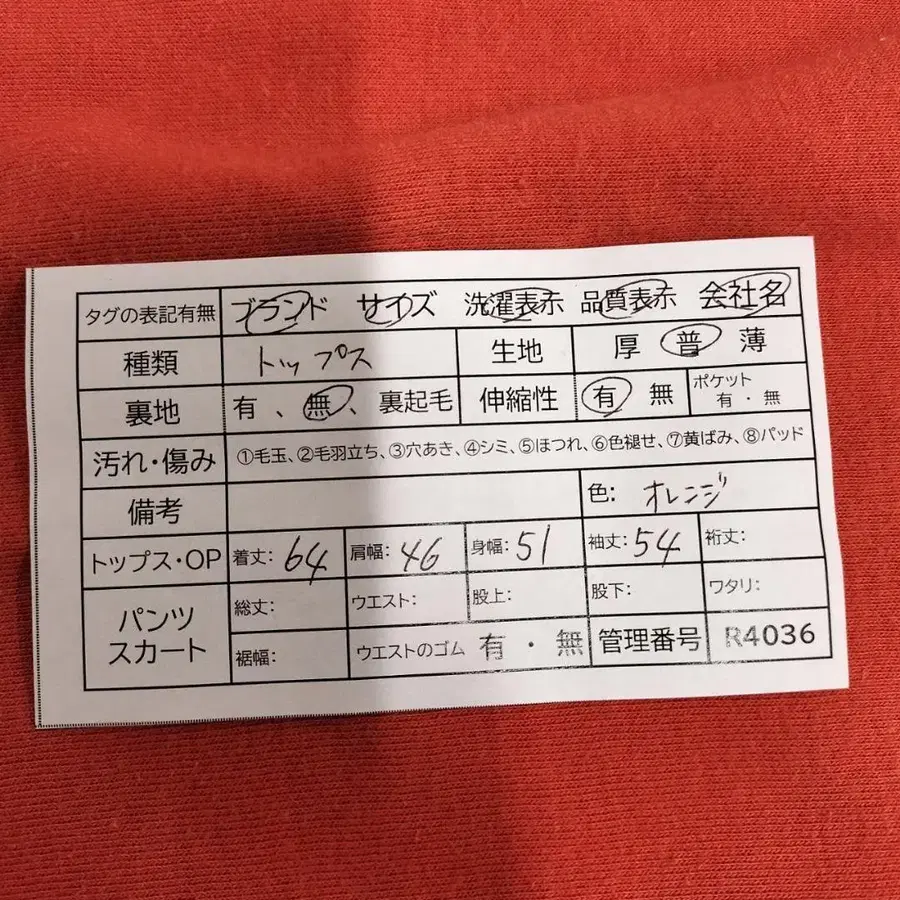 タグの表記有無 ブランド サイズ 洗濯表示 品質表示 会社名
種類 トップス 生地 厚 普 薄
裏地 有 、 無 、 裏起毛 伸縮性 有 無 ポケット 有 ・ 無
汚れ・傷み ①毛玉、②毛羽立ち、③穴あき、④シミ、⑤ほつれ、⑥色褪せ、⑦黄ばみ、⑧パッド
備考 色: オレンジ
トップス・OP 着丈: 64 肩幅: 46 身幅: 51 袖丈: 54 裄丈:
パンツ スカート 総丈: ウエスト: 股上: 股下: ワタリ:
裾幅: ウエストのゴム 有 ・ 無 管理番号 R4036